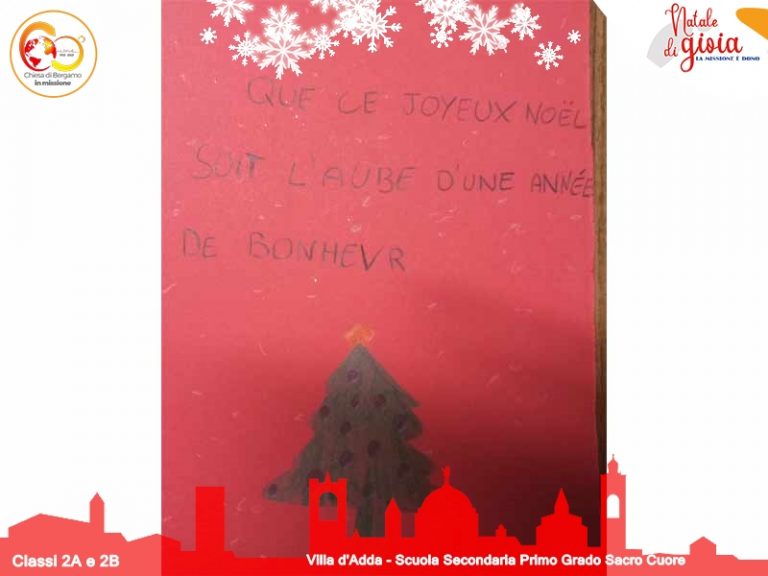 Chiesa di Bergamo
in missione
Natale
di gioia
LA MISSIONE È DONO
QUE LE JOYEUX NOËL
SOIT L'AUBE D'UNE ANNÉE
DE BONHEUR
Classi 2A e 2B
Villa d'Adda - Scuola Secondaria Primo Grado Sacro Cuore